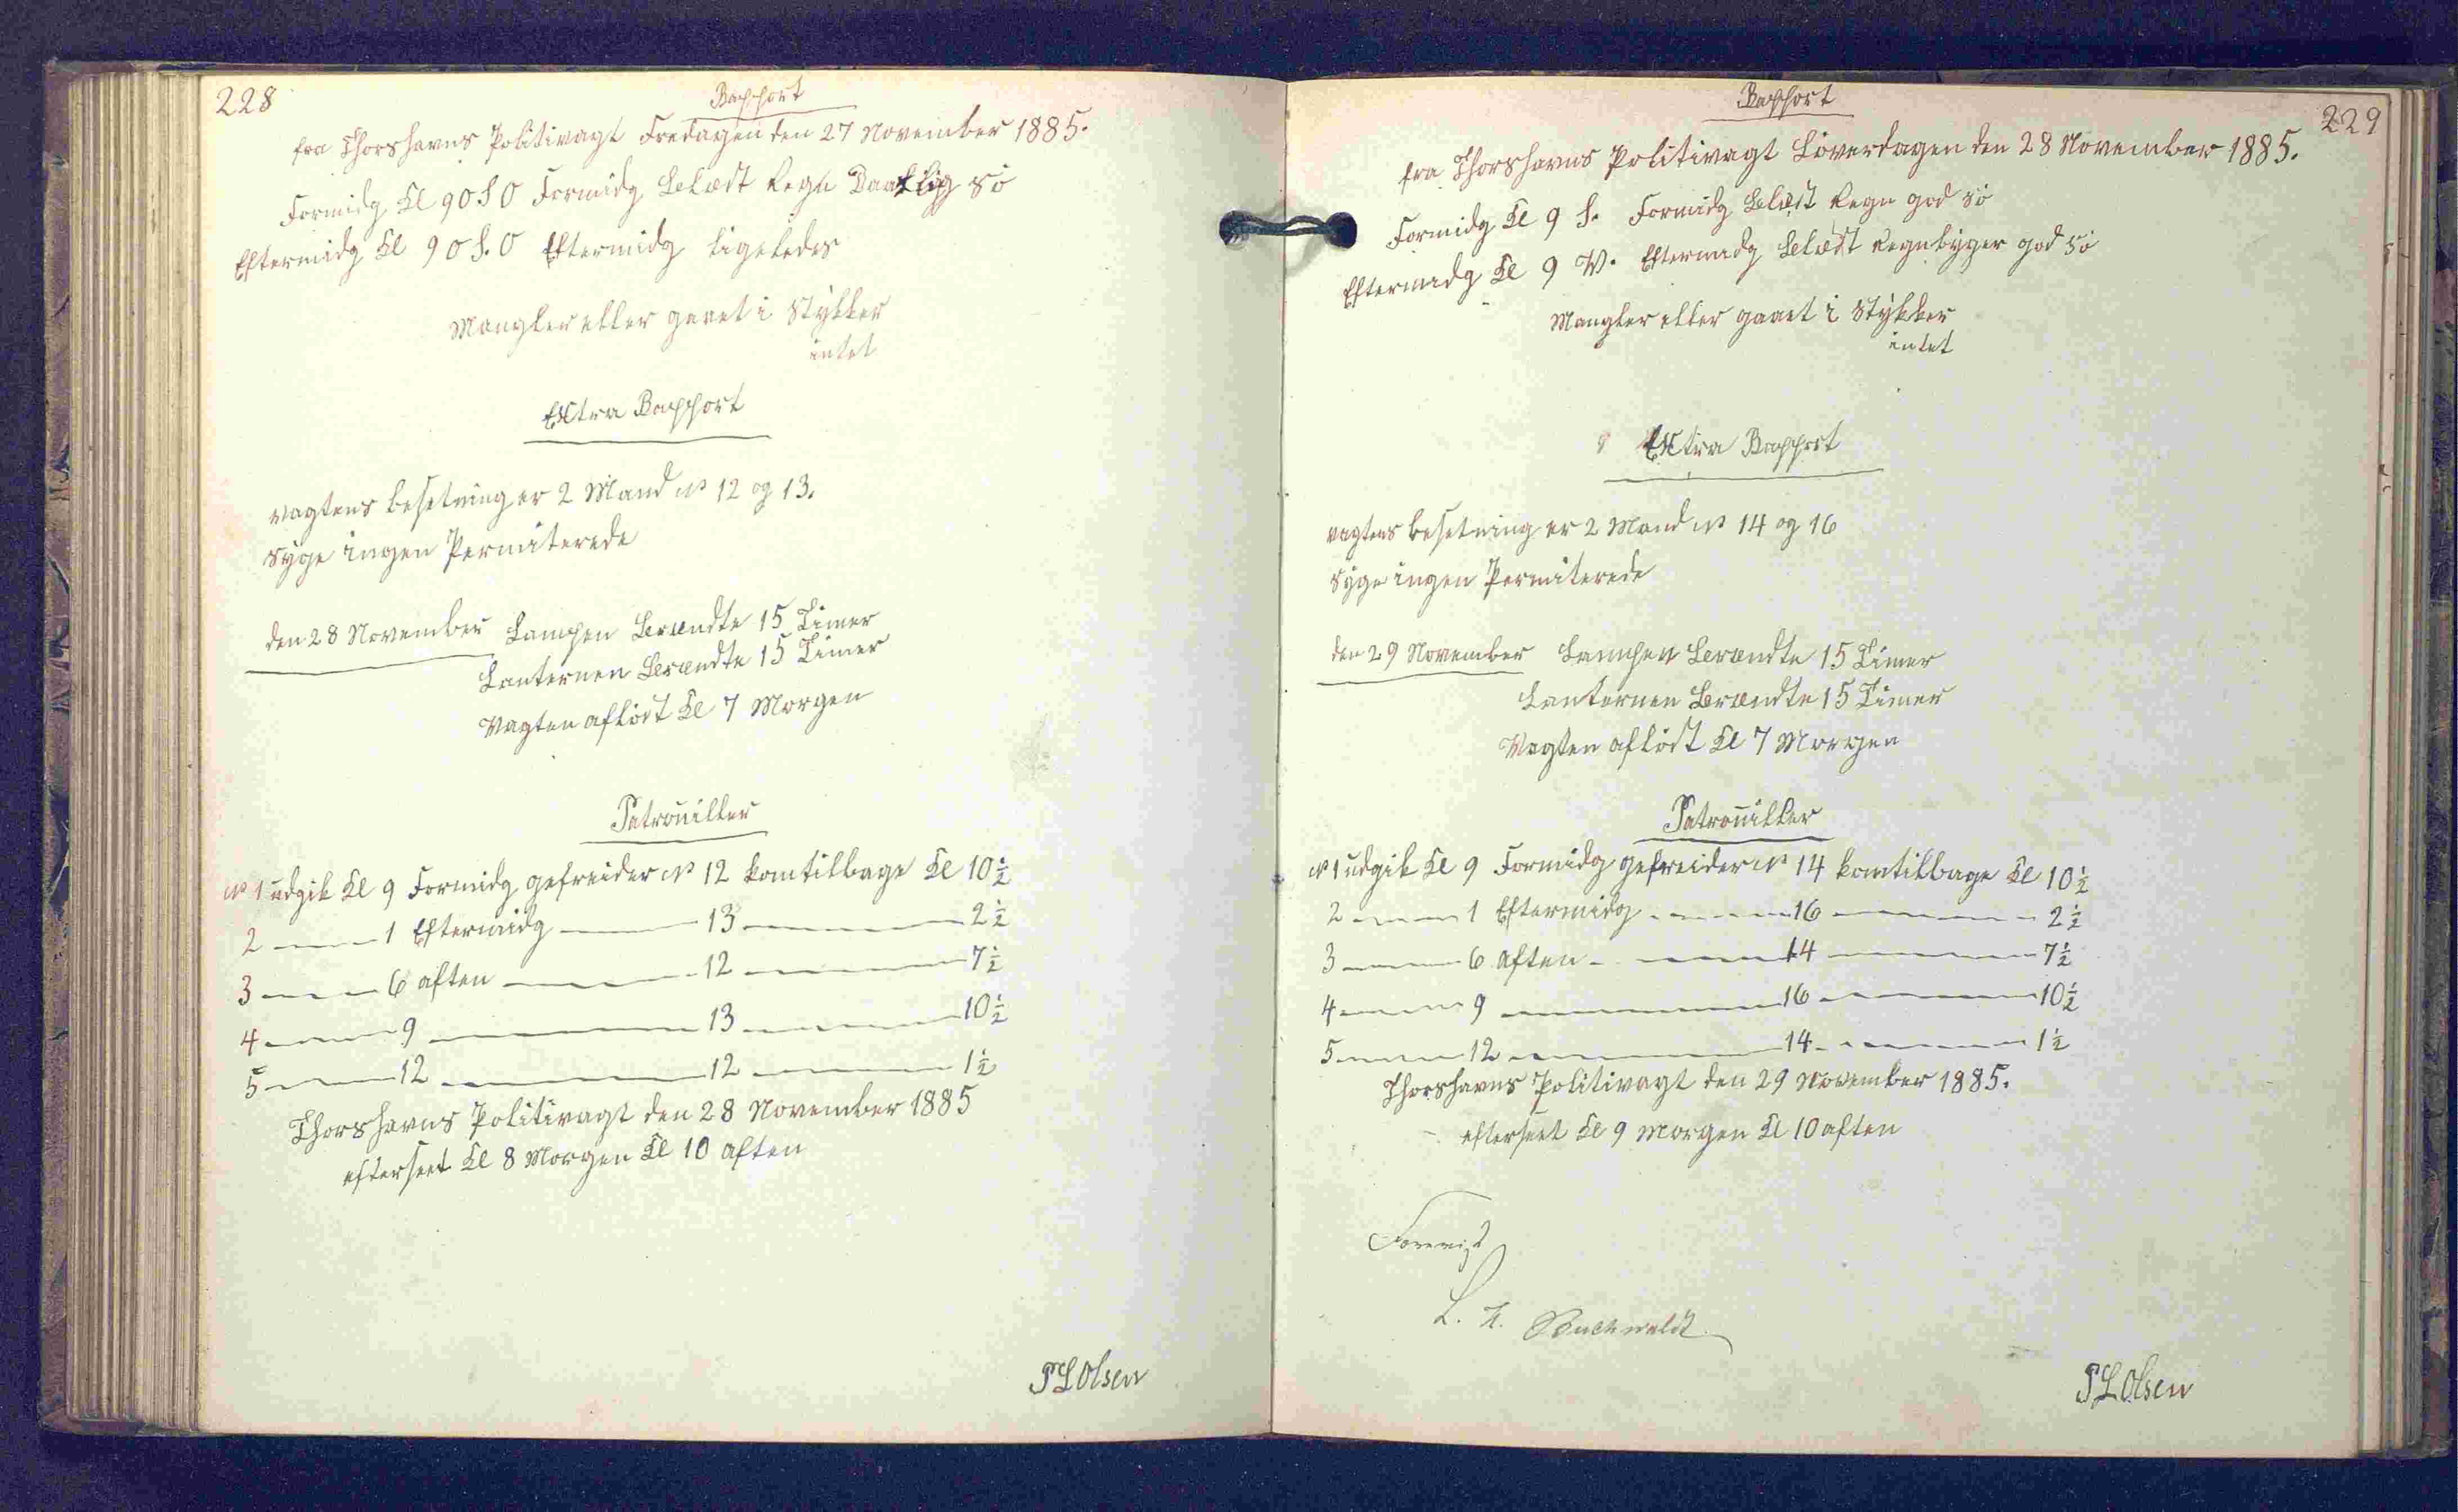 228
Rapport
fra Thorshavns Politivagt Fredagen den 27 November 1885.
Formidg Kl 9 OSO Formidg Blæst Regn Daarlig Sö
Eftermidg Kl 9 OS.O Eftermidg ligeledes
Mangler eller gaaet i Stykker
intet
Extra Rapport
Vagtens besetning er 2 Mand No 12 og 13.
Syge ingen Permiterede
den 28 November Lampen Brændte 15 Timer
Lanternen Brændte 15 Timer
Vagten aflöst Kl 7 Morgen
Patrouiller
No 1 udgik Kl 9 Formidg gefreider No 12 kom tilbage Kl 10½
2 — 1 Eftermidg — 13 — 2½
3 — 6 aften — 12 — 7½
4 — 9 — 13 — 10½
5 — 12 — 12 — 1½
Thorshavns Politivagt den 28 November 1885
efterseet Kl 8 Morgen Kl 10 aften
P L Olsen
229
Rapport
fra Thorshavns Politivagt Löverdagen den 28 November 1885.
Formidg Kl 9 S. Formidg Blæst Regn god Sö
Eftermidg Kl 9 V. Eftermidg Blæst Regnbyger god Sö
Mangler eller gaaet i Stykker
intet
Extra Rapport
Vagtens besetning er 2 Mand No 14 og 16
Syge ingen Permiterede
den 29 November Lampen Brændte 15 Timer
Lanternen Brændte 15 Timer
Vagten aflöst Kl 7 Morgen
Patrouiller
No 1 udgik Kl 9 Formidg gefreider No 14 kom tilbage Kl 10½
2 — 1 Eftermidg — 16 — 2½
3 — 6 aften — 14 — 7½
4 — 9 — 16 — 10½
5 — 12 — 14 — 1½
Thorshavns Politivagt den 29 November 1885.
efterseet Kl 9 Morgen Kl 10 aften
Forevist
Buchwaldt
P L Olsen